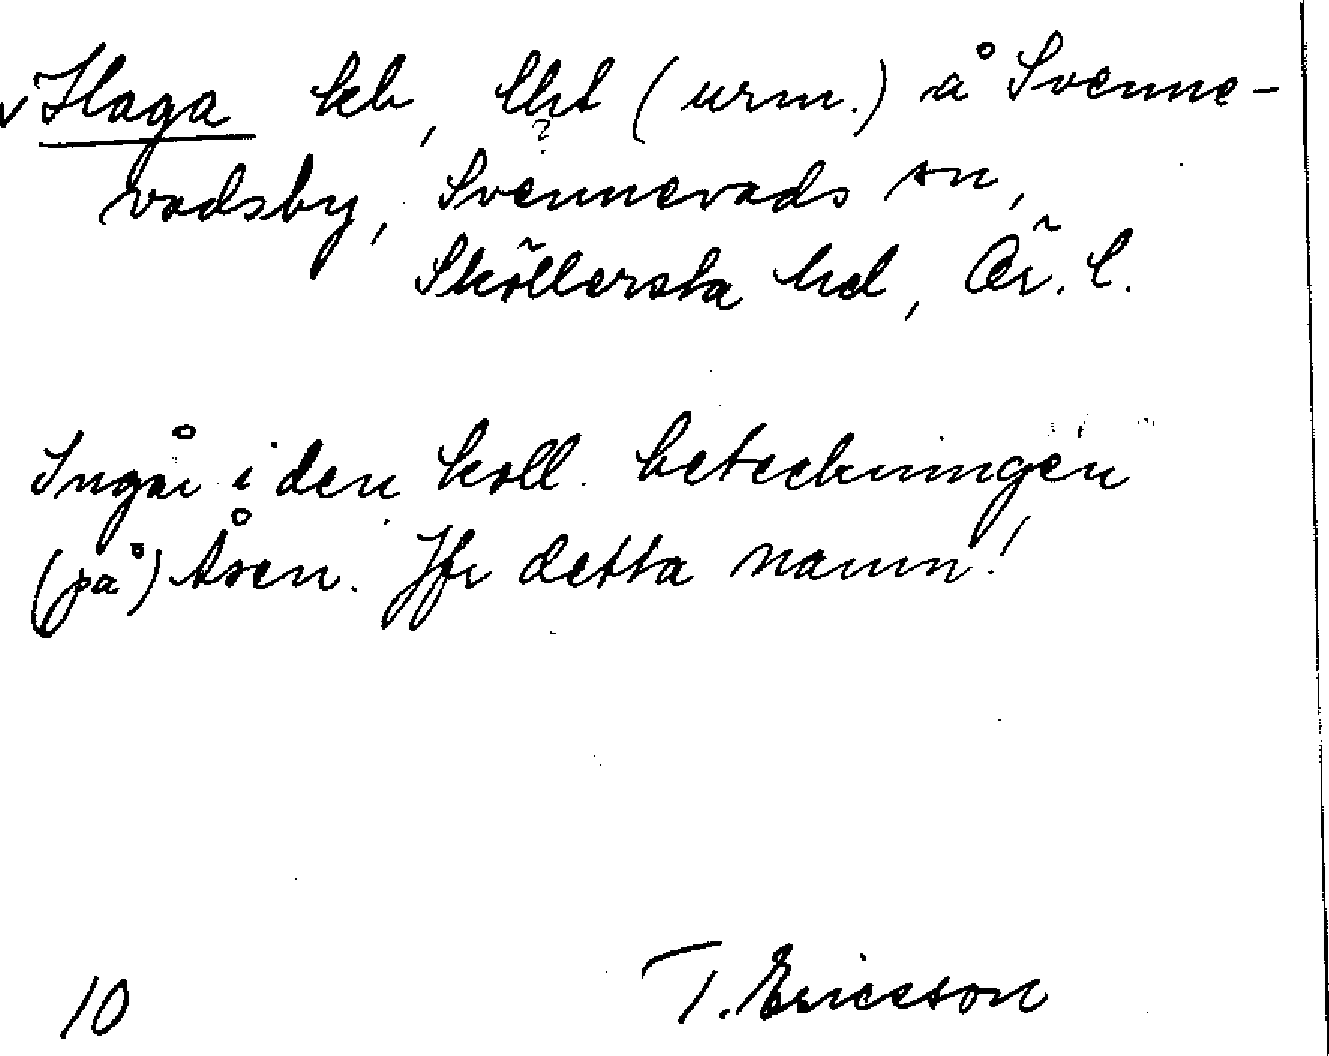 v Haga kb, lht (urm.) å Svenne-
?
vadsby, Svennevads sn,
Sköllersta hd, Ör. l.
Ingår i den koll. beteckningen
(på) Åsen. Jfr detta namn!
10 T. Ericsson